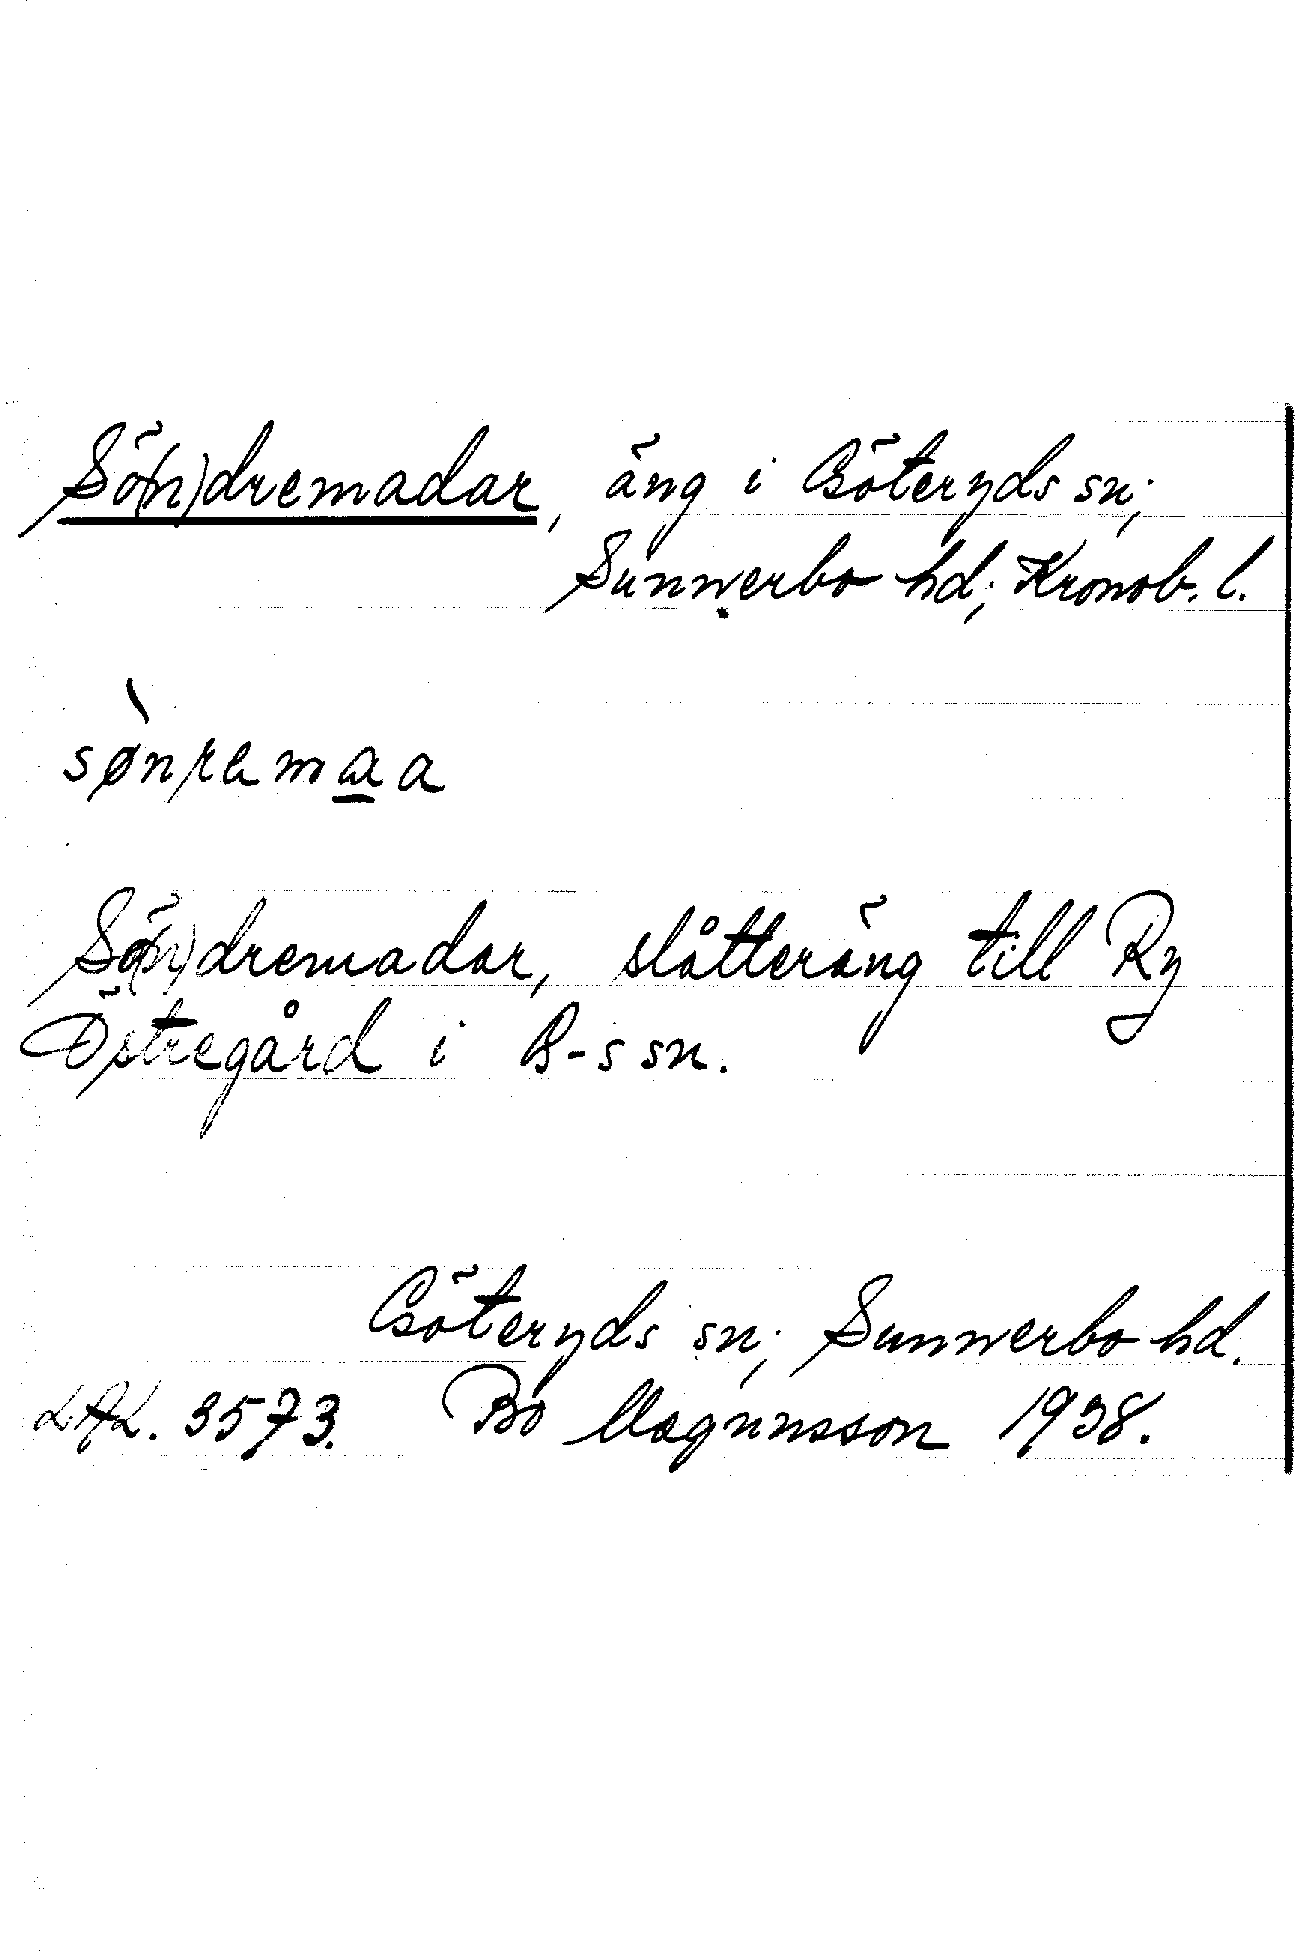 Sö(n)dremadar, äng i Göteryds sn;
Sunnerbo hd; Kronob. l.
sø̀nramaa
Sö(n)dremadar, slåtteräng till Ry
Östregård i G-s sn.
Göteryds sn; Sunnerbo hd.
LAL. 3573. Bo Magnusson 1938.